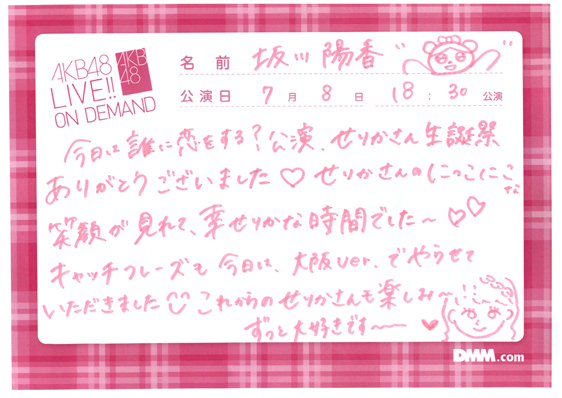 AKB48
LIVE!!
ON DEMAND
AKB
48
名前 坂川陽香
公演日 7月8日 18:30公演
今日は誰に恋をする?公演、せりかさん生誕祭
ありがとうございました♡ せりかさんのにっこにこな
笑顔が見れて、幸せりかな時間でした〜♡♡
キャッチフレーズも今日は、大阪ver.でやらせて
いただきました これからのせりかさんも楽しみ〜!!
ずっと大好きです〜♥
DMM.com